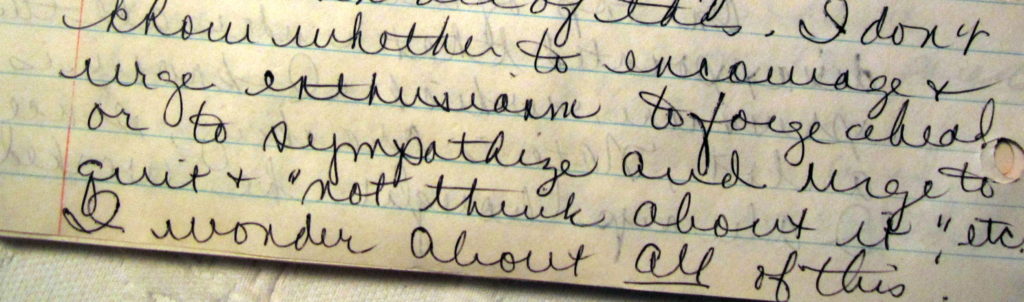 all of this. I don't
know whether to encourage &
urge enthusiasm to forge ahead
or to sympathize and urge to
quit & "not think about it", etc.
I wonder about all of this.